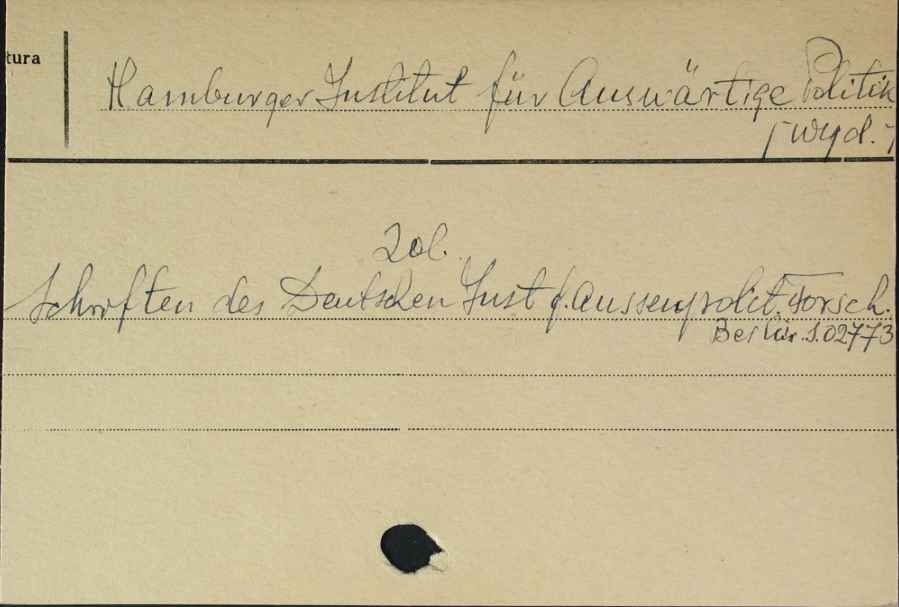 tura
Hamburger Institut für Auswärtige Politik
[wyd.]
Zob.
Schriften des Deutschen Inst f. Aussenpolit. Forsch.
Berlin. S.02773